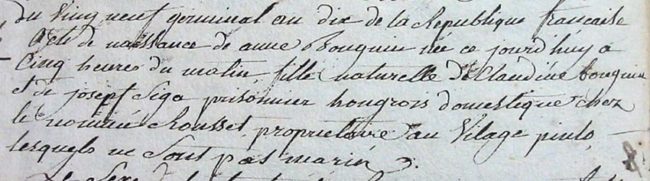 du vingt neuf germinal an dix de la Republique francaise
acte de naissance de anne Bouguin née ce jourd'huy a
Cinq heures du matin, fille naturelle de Claudine bouguin
et de josepf Siga prisonnier hongrois domestique chez
le nommé Rousset, proprietaire au Vilage pinto
lesquels ne Sont pas mariés
Le Sexe de